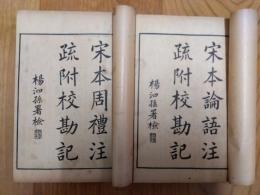 宋本論語注
疏附校勘記
楊泗孫署檢
宋本周禮注
疏附校勘記
楊泗孫署檢